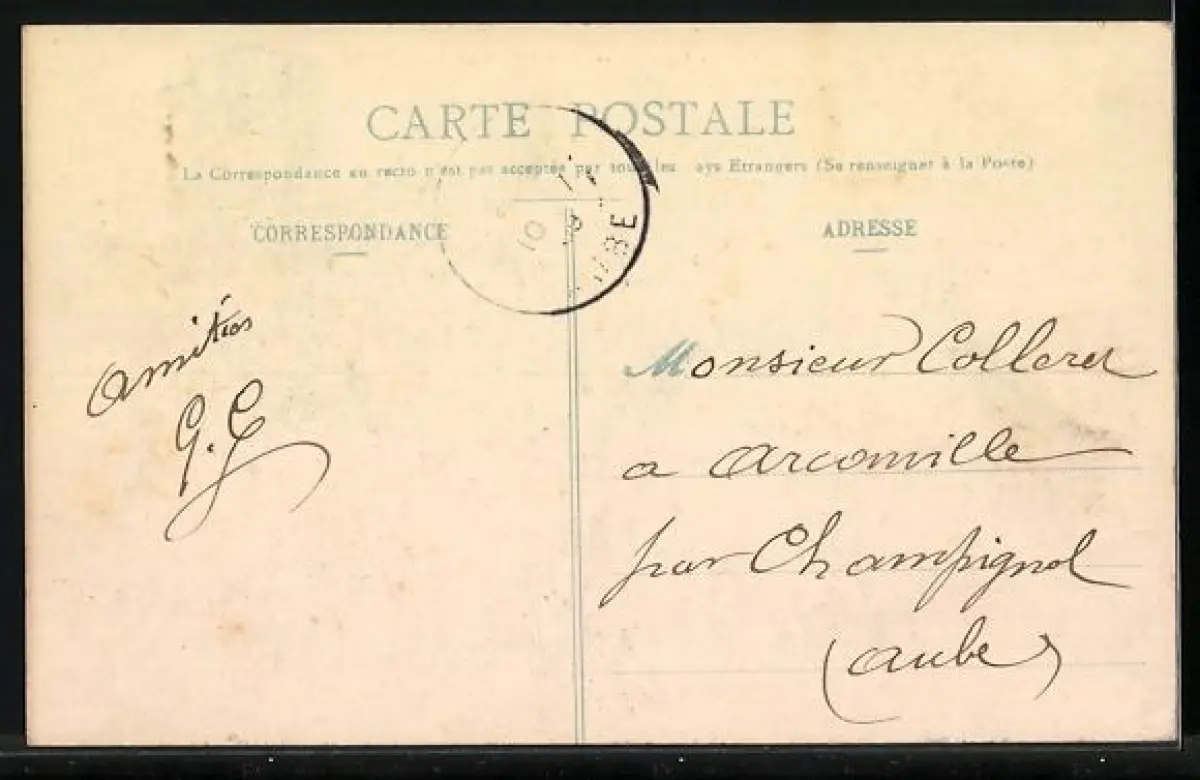 CARTE POSTALE
La Correspondance au recto n'est pas acceptée par tous les ays Etrangers (Se renseigner à la Poste)
CORRESPONDANCE
ADRESSE
10
UBE
Amitiés
G. G
Monsieur Colleret
a Arconville
par Champignol
(Aube)